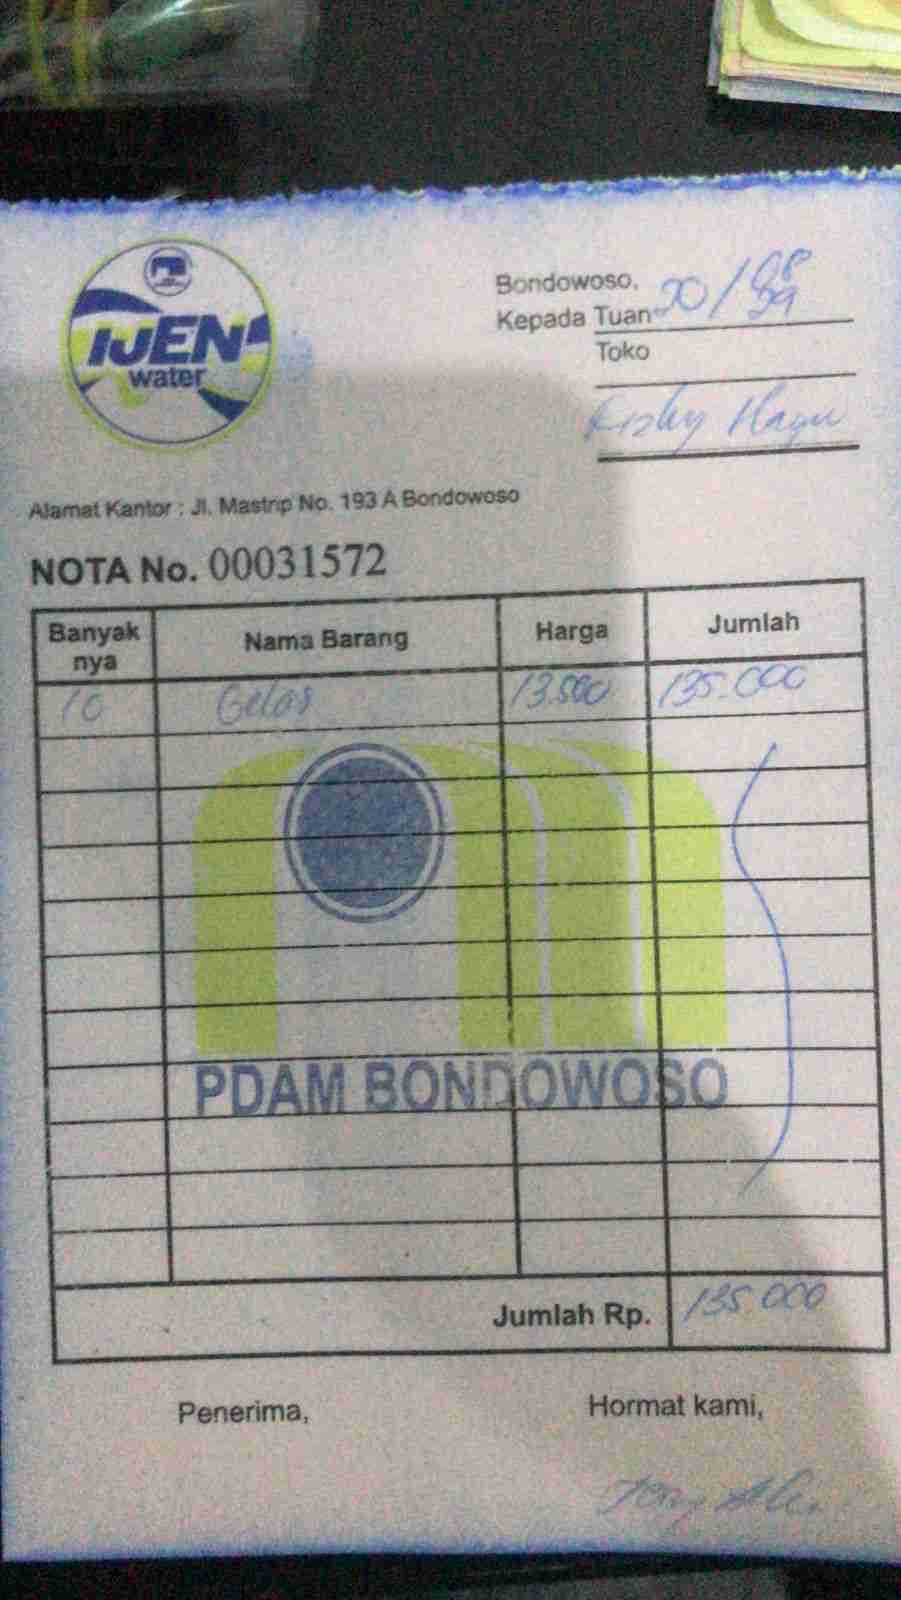 IJEN
water
Bondowoso, 20/08
Kepada Tuan
Toko
Alamat Kantor : Jl. Mastrip No. 193 A Bondowoso
NOTA No. 00031572
Banyak nya Nama Barang Harga Jumlah
10 Gelas 13.500 135.000
PDAM BONDOWOSO
Jumlah Rp. 135.000
Penerima, Hormat kami,